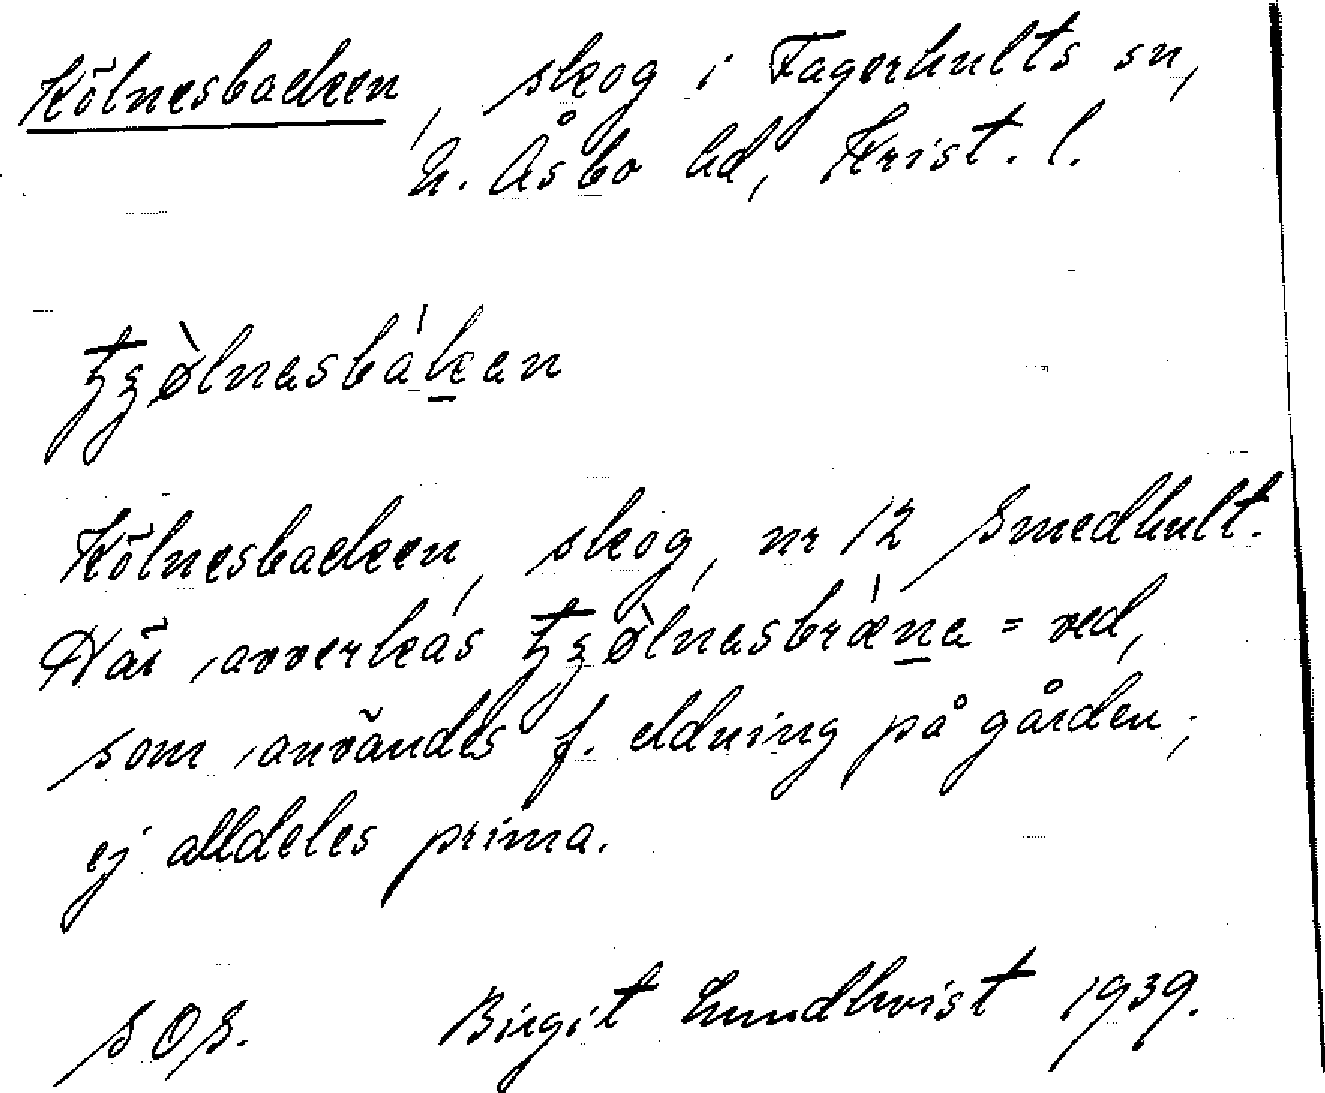 Kölnesbacken, skog i Fagerhults sn,
N. Åsbo hd, Krist. l.
tʒø̀lnasbákan
Kölnesbacken, skog, nr 12 Smedhult.
Här avverkas tʒø̀lnasbræ̀na = ved,
som användes f. eldning på gården;
ej alldeles prima.
SOS. Birgit Lundkvist 1939.